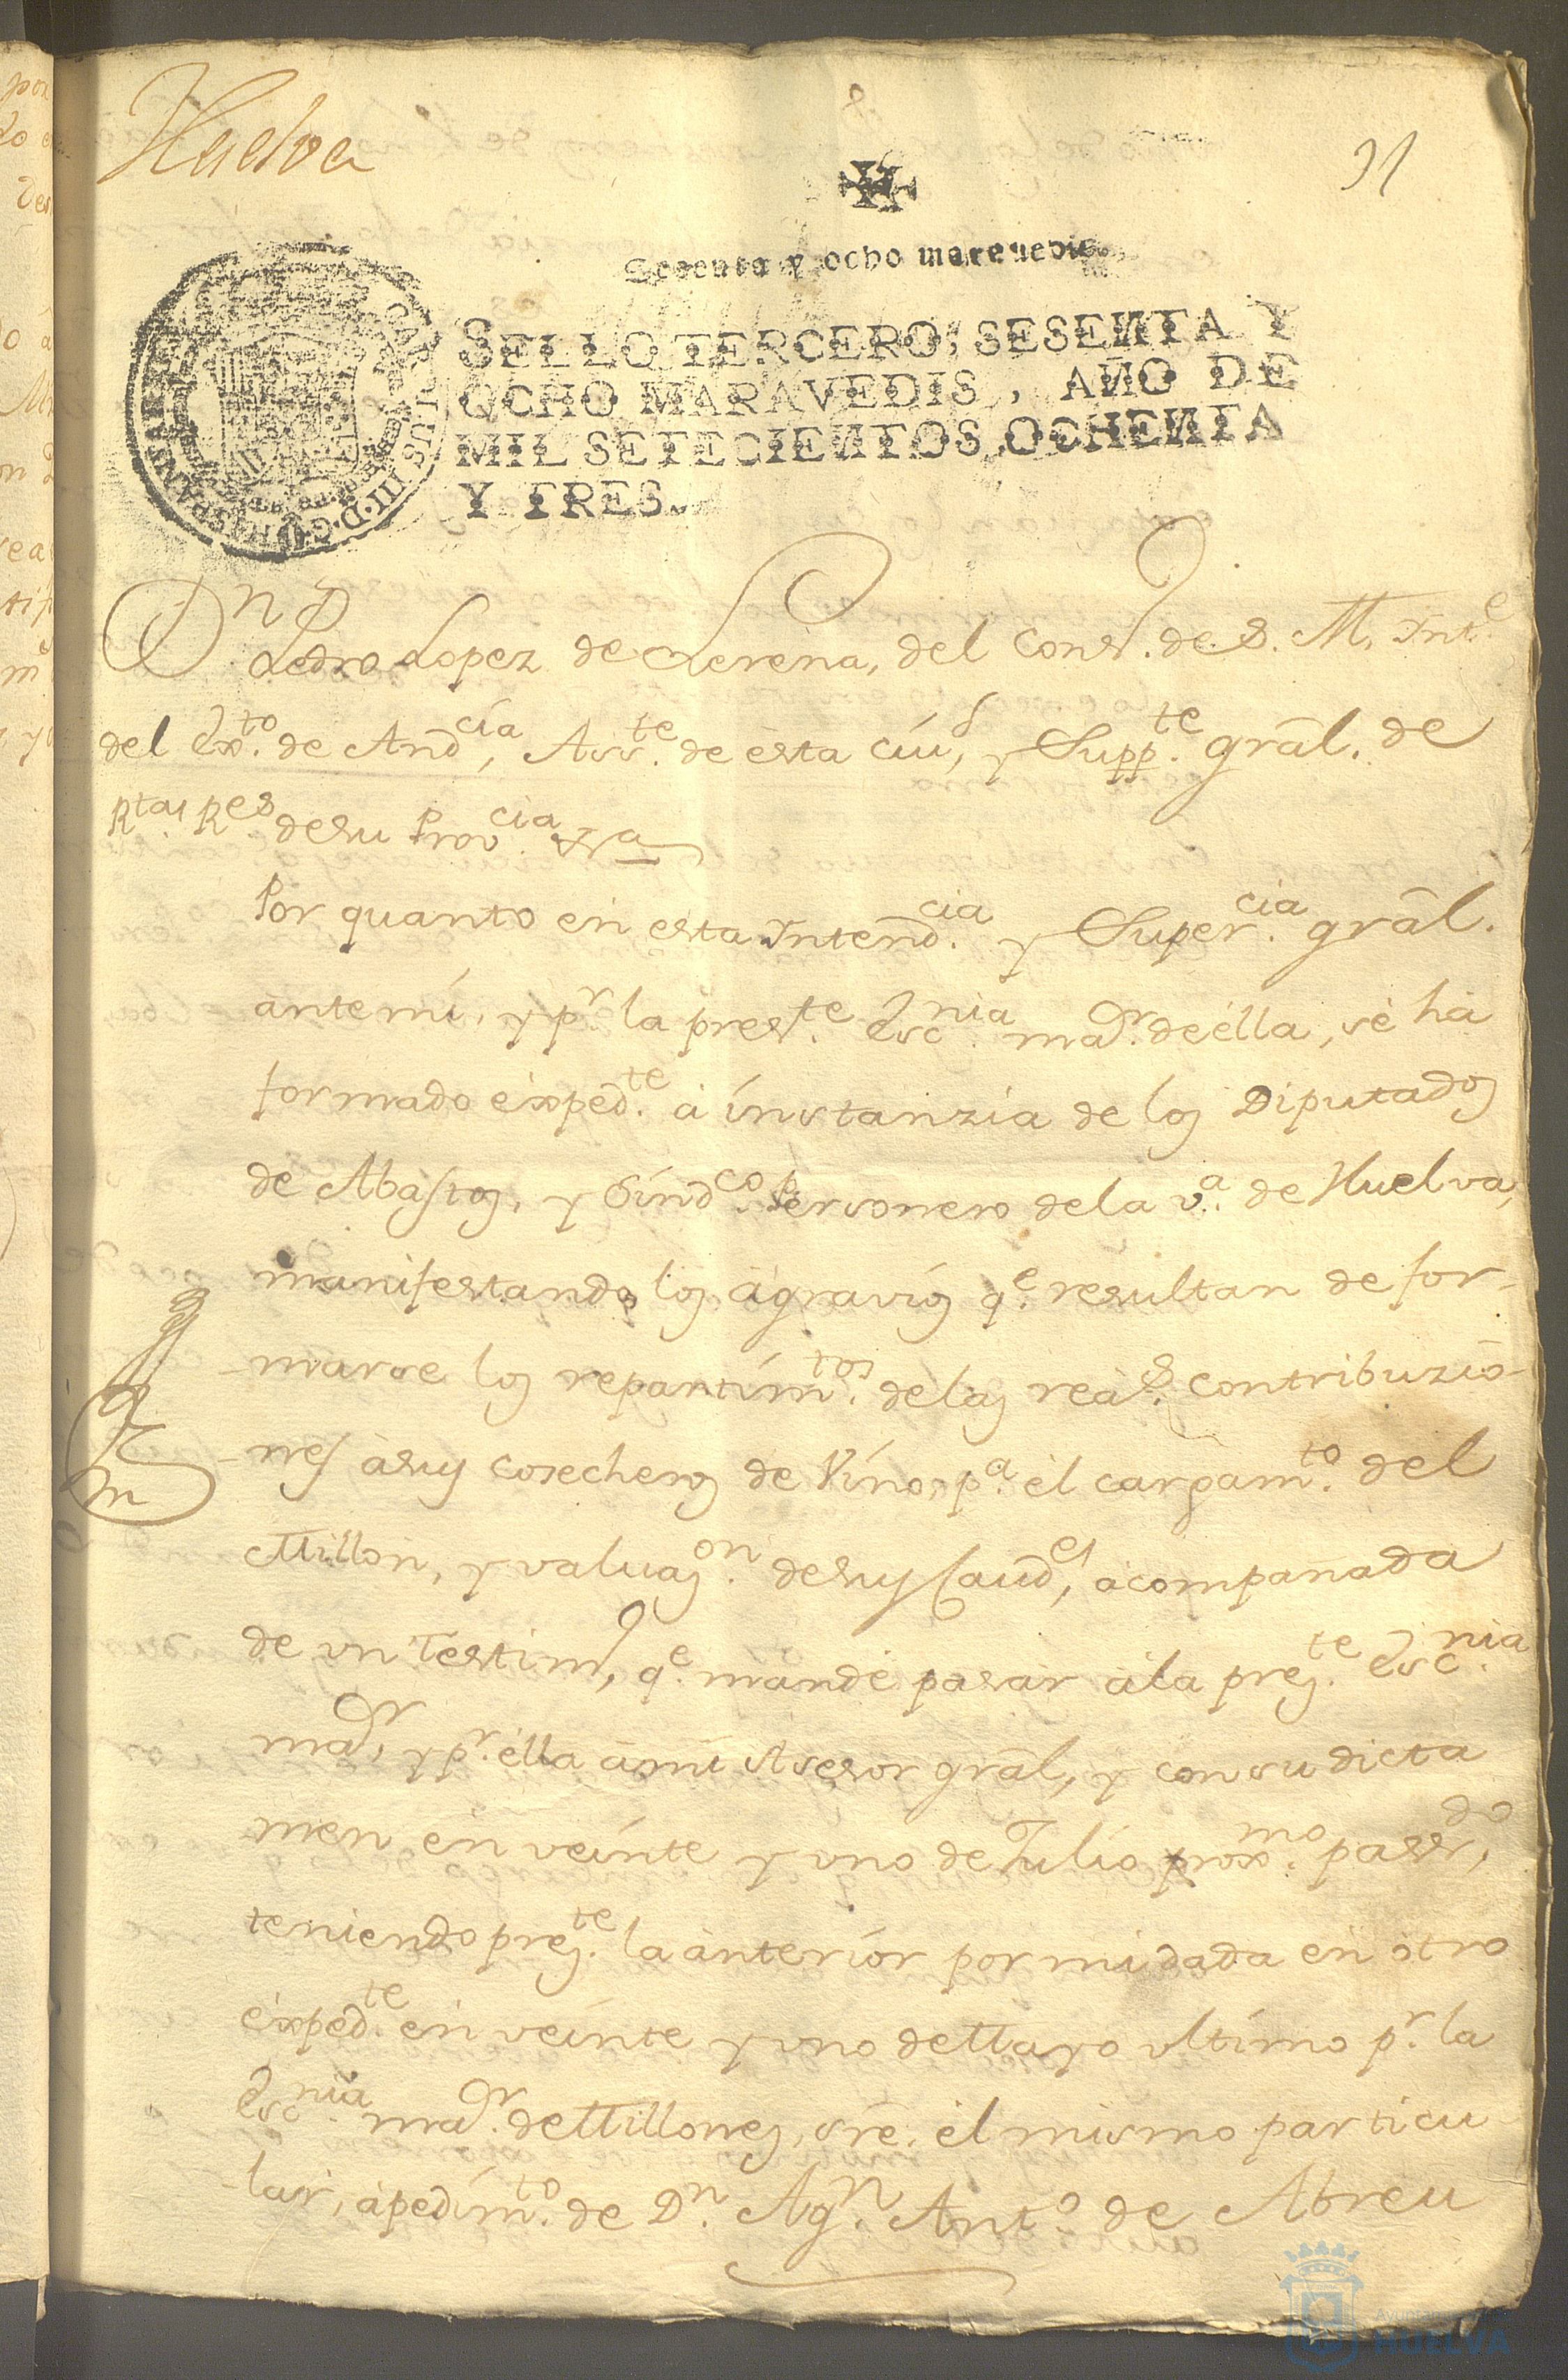 Huelva
91
Sesenta y ocho maravedis.
SELLO TERCERO, SESENTA Y
OCHO MARAVEDIS, AÑO DE
MIL SETECIENTOS OCHENTA
Y TRES.
CAROLUS III D. G. HISPANIAR
Dn Pedro Lopez de Lerena, del Cons.º de S. M. Intte
del Exto. de Andcía, Asste. de esta Ciud, y Suppte. grãl. de
Rtas Res de su Provcia. &ra
Por quanto en esta Intendcia. y Supercia. grãl.
ante mí, y pr. la preste. Escnia. maor. de élla, se há
formado expedte. a instanzia de los Diputados
de Abastos, y Sindco Personero de la va. de Huelva,
manifestando los agravios qe. resultan de for-
-marse los repartimtos. de las reas. contribuzio-
-nes à sus cosecheros de Vino, pa. el cargamto. del
Millon, y valuazon. de sus Caudes, acompañada
de un Testimo, qe. mandé pasar à la preste. Escnia.
maor, y pr. élla à mi Asesor grãl, y con su dicta
men en veinte y uno de Julio proxmo. passdo,
teniendo preste. la anterior por mi dada en otro
expedte. en veinte y uno de Mayo ultimo pr. la
Escnia. maor. de Millones, sre. el mismo particu
-lar, à pedimto. de Dn. Agn. Anto. de Abreu
Ayuntamiento de
HUELVA